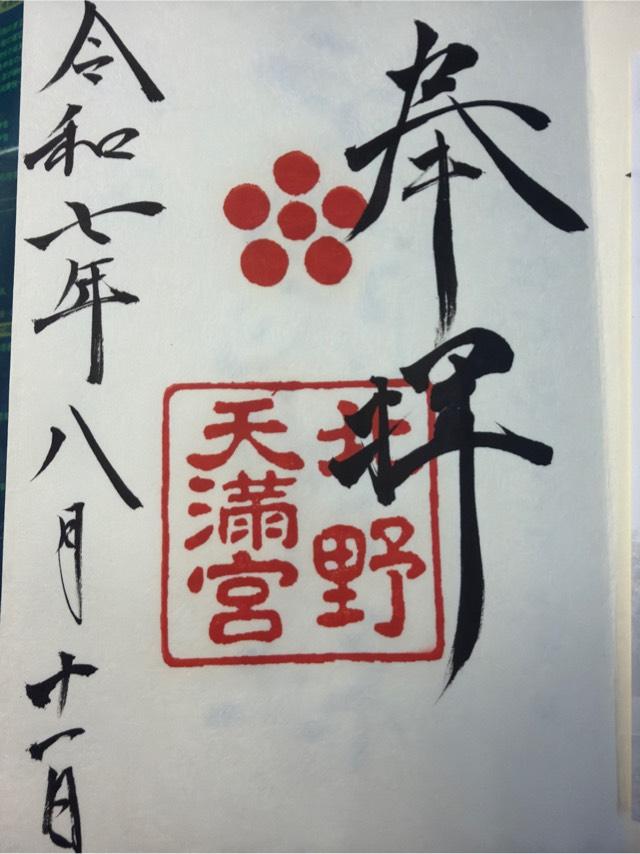 奉拝
北野
天満宮
令和七年八月十一日